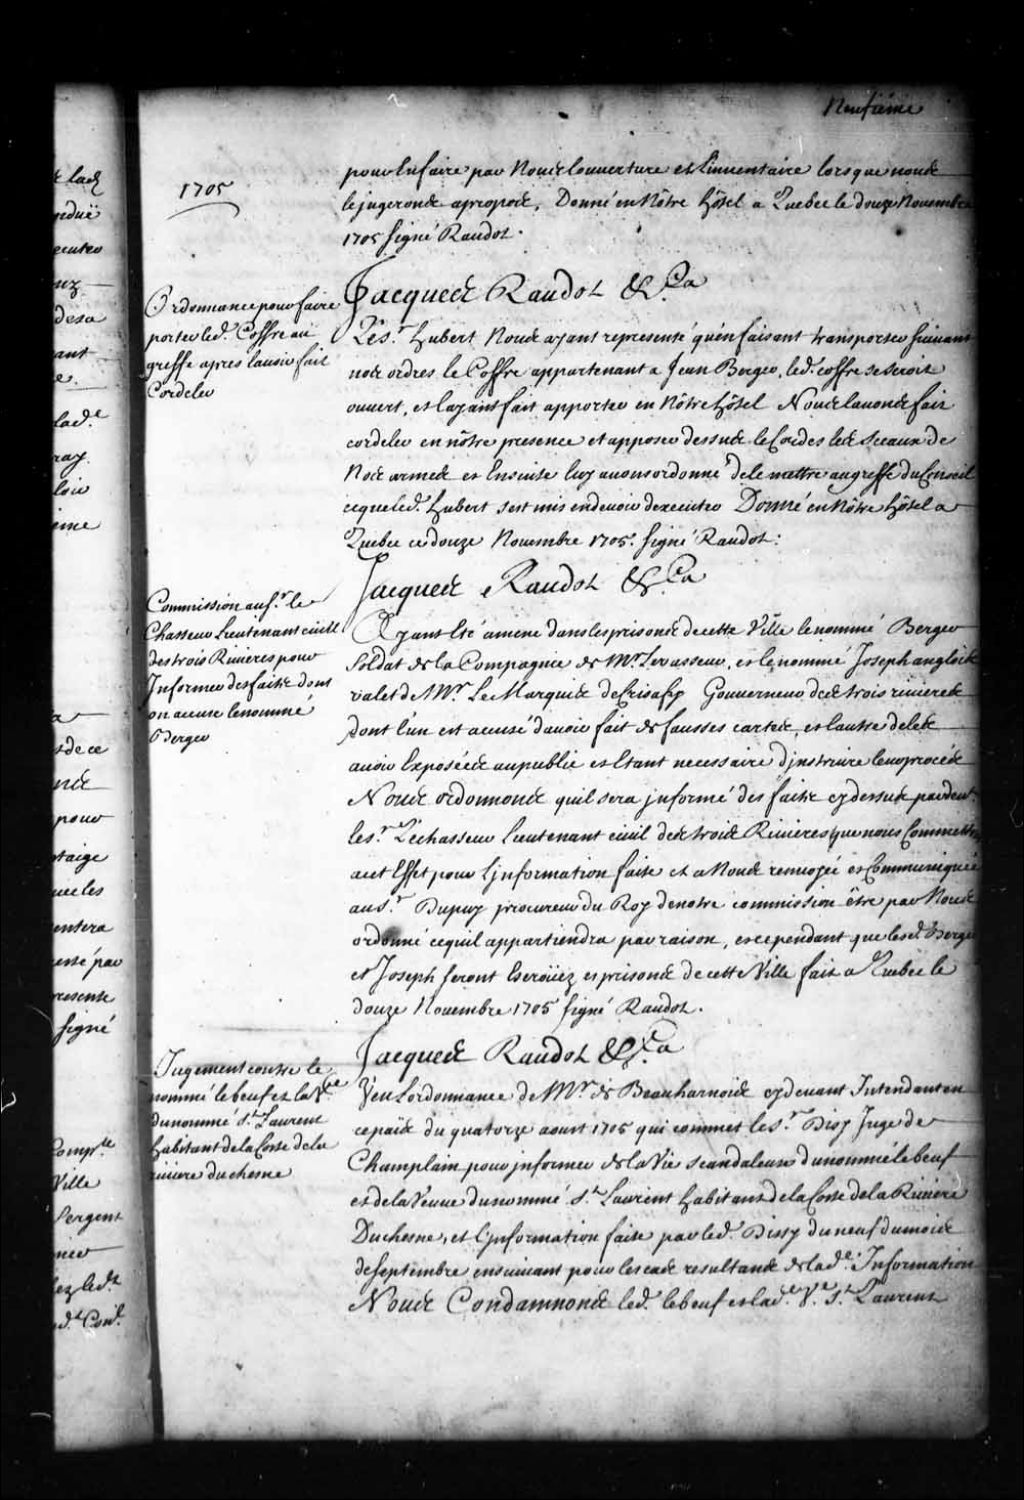 Neufiéme
1705
pour En faire par Nous Louverture et l'inuentaire lorsque nous
le jugerons apropos, Donné en Nôtre hôtel a Quebec le douze Nouembre
1705 signé Raudot.
Ordonnance pour faire
porter led. Coffre au
greffe apres lauoir fait
Cordeler
Jacques Raudot &c.a
Le s.r hubert Nous ayant representé qu'en faisant transporter suiuant
nos ordres le Coffre appartenant a Jean Berger, led. coffre se seroit
ouuert, et layant fait apporter en Nôtre hôtel Nous lauons fait
cordeler en nôtre presence et apposer dessus le Cordes les sceaux de
Nos armes et Ensuite luy auons ordonné de le mettre au greffe du Conseil
ce que led. hubert sest mis en deuoir dexecuter Donné en Nôtre hôtel a
Quebec ce douze Nouembre 1705. signé Raudot:
Commission au s.r le
Chasseur Lieutenant ciuill
des trois Riuieres pour
Informer des faits dont
on accuse le nommé
Berger
Jacques Raudot &c.a
Ayant Eté amené dans les prisons de cette Ville le nommé Berger
soldat de la Compagnie de Mr. Leuasseur, et le nommé Joseph anglois
valet de Mr. Le Marquis de Crisafy Gouuerneur des trois riuieres
dont l'un est accusé dauoir fait de fausses cartes, et lautre de les
auoir Exposées au public et Etant necessaire dJnstruire leur procés
Nous ordonnons quil sera jnformé des faits cy dessus pardeut.
le s.r Lechasseur Lieutenant ciuil des trois Riuieres que nous Commettons
a cet Effet pour Ljnformation faite et a Nous renuoyée et Communiquée
au s.r Dupuy procureur du Roy de notre commission être par Nous
ordonné ce quil appartiendra par raison, et cependant que lesd. Berger
et Joseph seront Escroüez es prisons de cette Ville fait a Quebec le
douze Nouembre 1705 signé Raudot.
Jugement contre le
nommé lebeuf et la V.ue
du nommé s.t Laurent
habitant de la Coste de la
riuiere du chesne
Jacques Raudot &c.a
Veu Lordonnance de Mr. de Beauharnois cy deuant Intendant en
ce païs du quatorze aoust 1705 qui commet le s.r Bisy Juge de
Champlain pour jnformer de la Vie scandaleuse du nommé lebeuf
et de la Veuue du nommé s.t Laurent habitant de la Coste de la Riuiere
Duchesne, et ljnformation faite par led. Bissy du neuf du mois
de septembre ensuiuant pour les cas resultans de lad.e Information
Nous Condamnons led. lebeuf et lad.e V.e s.t Laurent